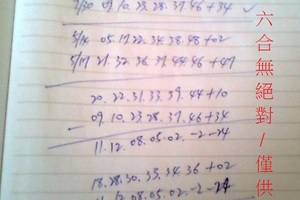 7/30 09.10.23.28.37.46+34
5/14 05.17.22.34.38.48+02
5/17 21.32.36.37.44.46+47
20.22.31.33.39.44+10
- 09.10.23.28.37.46+34
11.12.08.05.02.-2-24
18.28.30.33.34.36+02
11.12.08.05.02.-2-24
六合無絕對/僅供